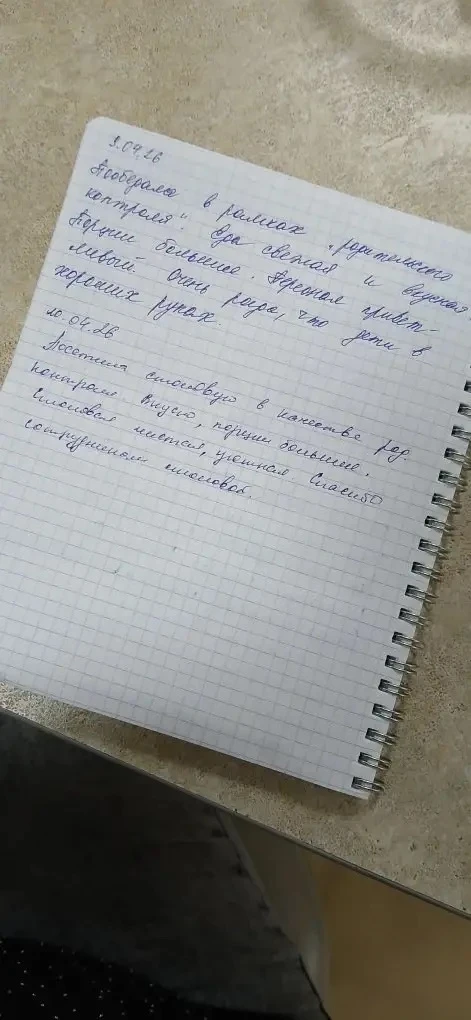 9.04.26
Пообедала в рамках "родительского
контроля". Еда свежая и вкусная
Порции большие. Персонал привет-
ливый. Очень рада, что дети в
хороших руках.
10.04.26
Посетила столовую в качестве род.
контроля. Вкусно, порции большие.
Столовая чистая, уютная. Спасибо
сотрудникам столовой.